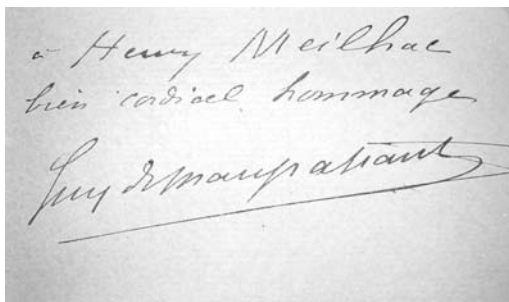 à Henry Meilhac
bien cordial hommage
Guy de Maupassant